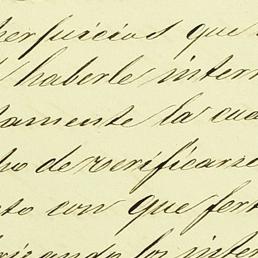 perjuicios que
haberle interr
tamente la cua
ho de verificarse
to con que fert
bricando los inter